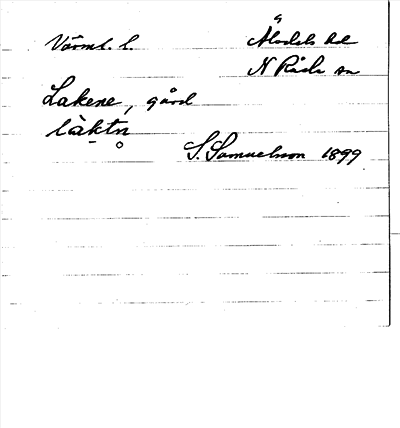 Värml. l.
Älvdals hd
N Råda sn
Lakene, gård
làktn
S. Samuelsson 1899